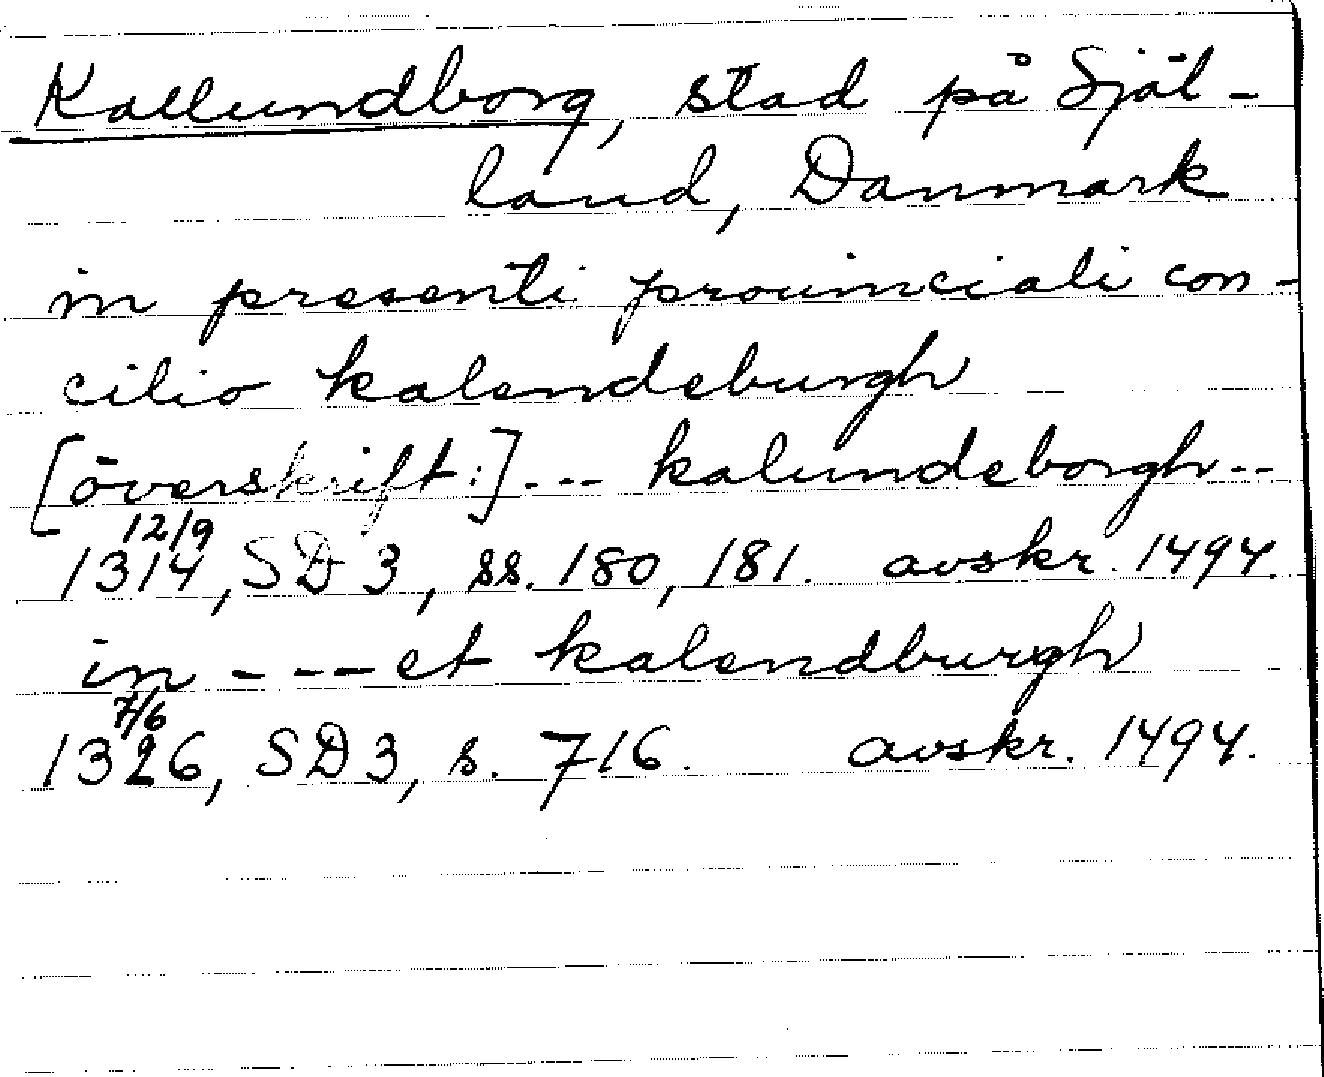 Kallundborg, stad på Själ-
land, Danmark
in presenti prouinciali con-
cilio kalendeburgh
[överskrift:]--- kalundeborgh--
12/9
1314, SD 3, ss. 180, 181. avskr. 1494.
in ---et kalendburgh
7/6
1326, SD 3, s. 716. avskr. 1494.